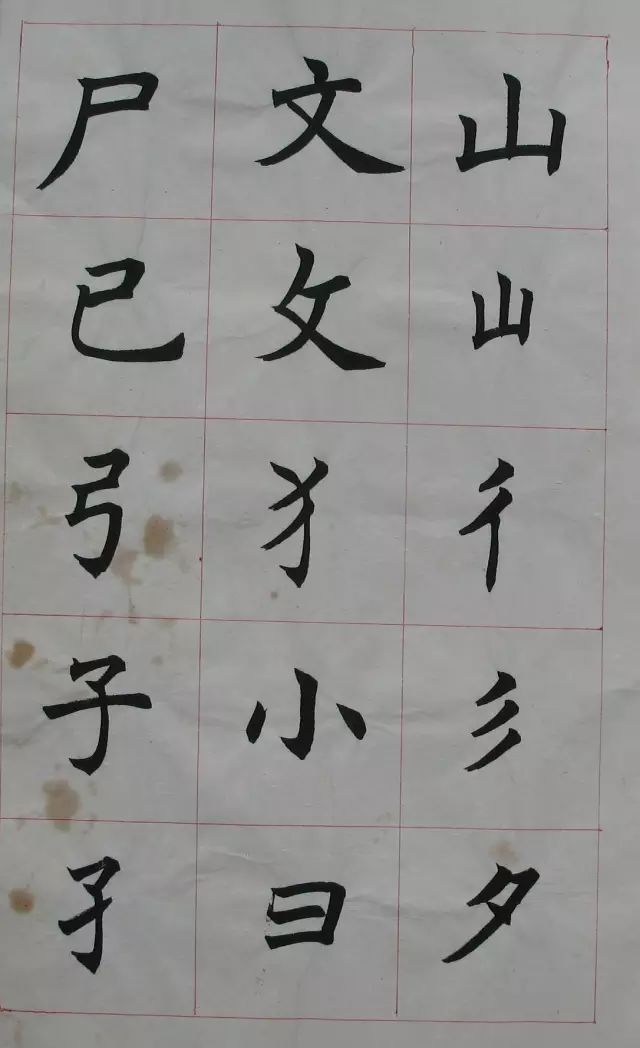 山山彳彡夕
文攵犭小曰
尸已弓子孑